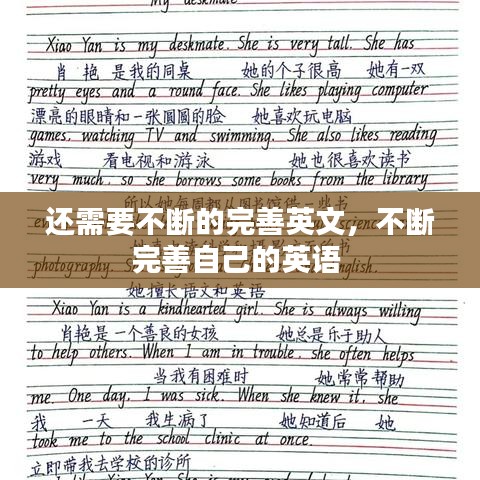 My deskmate
Xiao Yan is my deskmate. She is very tall. She has
肖 艳 是我的同桌 她的个子很高 她有一双
pretty eyes and a round face. She likes playing computer
漂亮的眼睛和一张圆圆的脸 她喜欢玩电脑
games, watching TV and swimming. She also likes reading
游戏 看电视和游泳 她也很喜欢读书
very much, so she borrows some books from the library
还需要不断的完善英文，不断
完善自己的英语
photography.
她擅长语文和英语
Xiao Yan is a kindhearted girl. She is always willing
肖艳是一个善良的女孩 她总是乐于助人
to help others. When I am in trouble, she often helps
当我有困难时 她常常帮助
me. One day, I was sick. When she knew it, she
我 一天 我生病了 她知道后 她
took me to the school clinic at once.
立即带我去学校的诊所